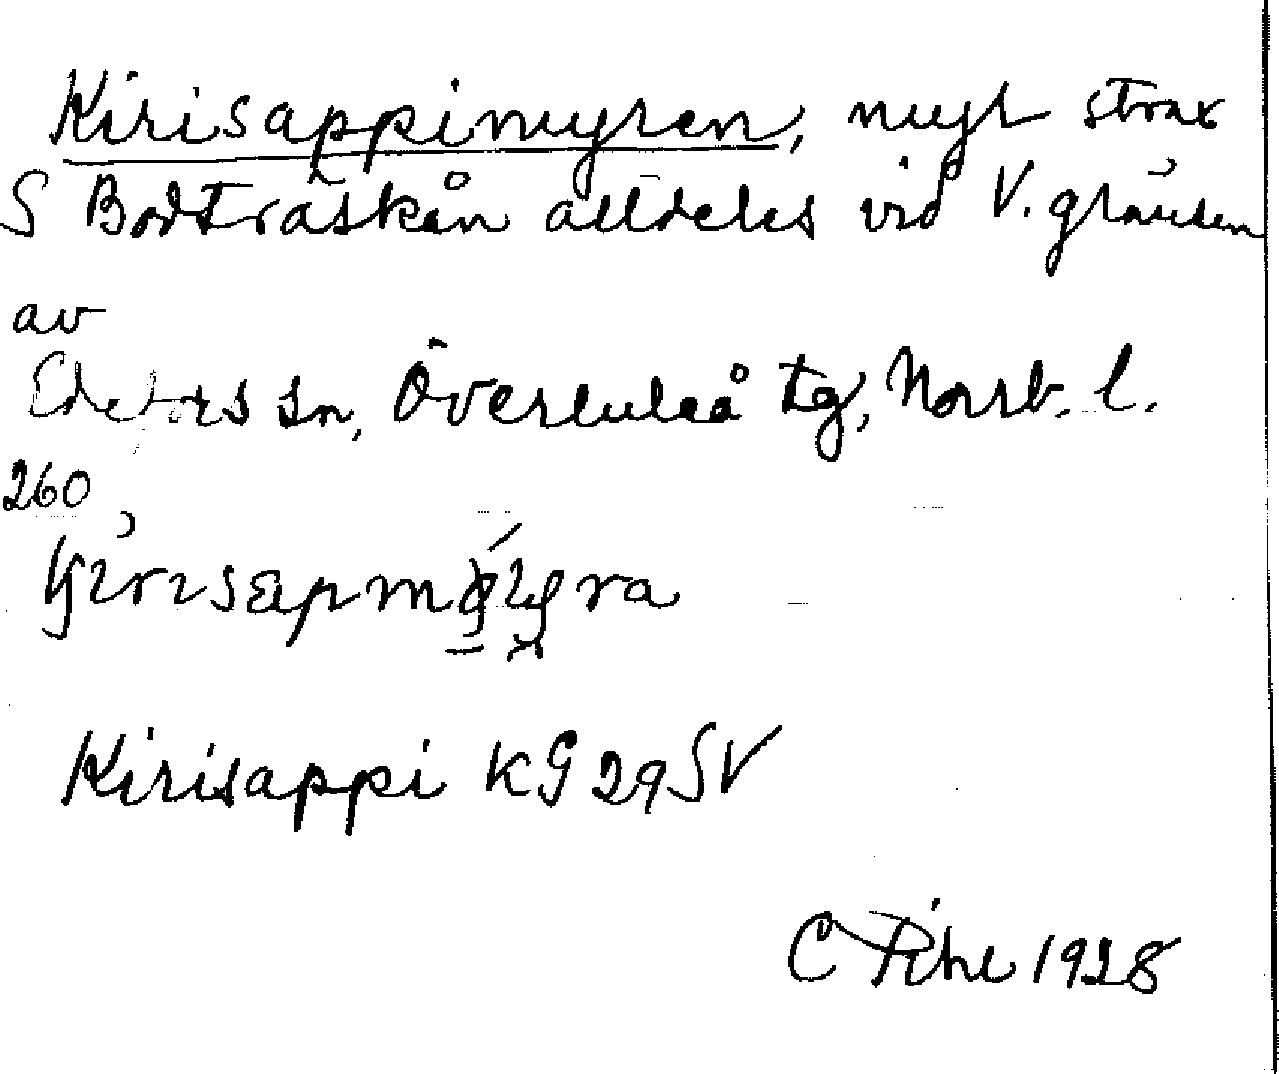 Kirisappimyren, myr strax
S Bodträskån alldeles vid V. gränsen
av
Edefors sn, Överluleå tg, Norrb. l.
260
Kirisappi KG 29 SV
C Pihl 1928